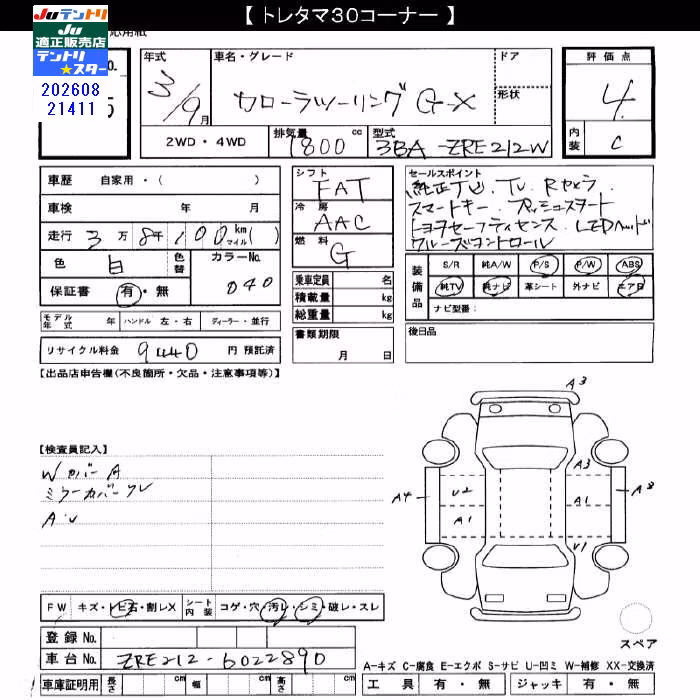 【 トレタマ30コーナー 】
Juテントリ
JU
適正販売店
テントリ
★スター
202608
21411
応用紙
No.
5
年式
3/9月
車名・グレード
カローラツーリング G-X
ドア
形状
評価点
4
内装
C
2WD・4WD
排気量
1800 cc
型式
3BA-ZRE212W
車歴 自家用・( )
車検 年 月
走行 3万8年100 km マイル( )
色 白 色替
カラーNo. 040
保証書 有・無
シフト
FAT
冷房
AAC
燃料
G
乗車定員 名
積載量 kg
総重量 kg
セールスポイント
純正ナビ. TV. Rカメラ.
スマートキー. プッシュスタート
トヨタセーフティセンス. LEDヘッド
クルーズコントロール
装備品
S/R 純A/W P/S P/W ABS
純TV 純ナビ 革シート 外ナビ エアB
ナビ型番:
モデル年式 年 ハンドル 左・右 ディーラー・並行
書類期限
月 日
後日品
リサイクル料金 9440 円 預託済
【出品店申告欄(不良箇所・欠品・注意事項等)】
【検査員記入】
W カバーA
ミラーカバーワレ
A・U
A3
A3
A4
U2
A1
A1
A3
U1
FW キズ・トビ石・割レX
シート内装 コゲ・穴・汚レ・シミ・破レ・スレ
スペア
登録 No.
車台 No. ZRE212-6022890
車庫証明用 長さ cm 幅 cm 高さ cm
A-キズ C-腐食 E-エクボ S-サビ U-凹ミ W-補修 XX-交換済
工具 有・無 ジャッキ 有・無